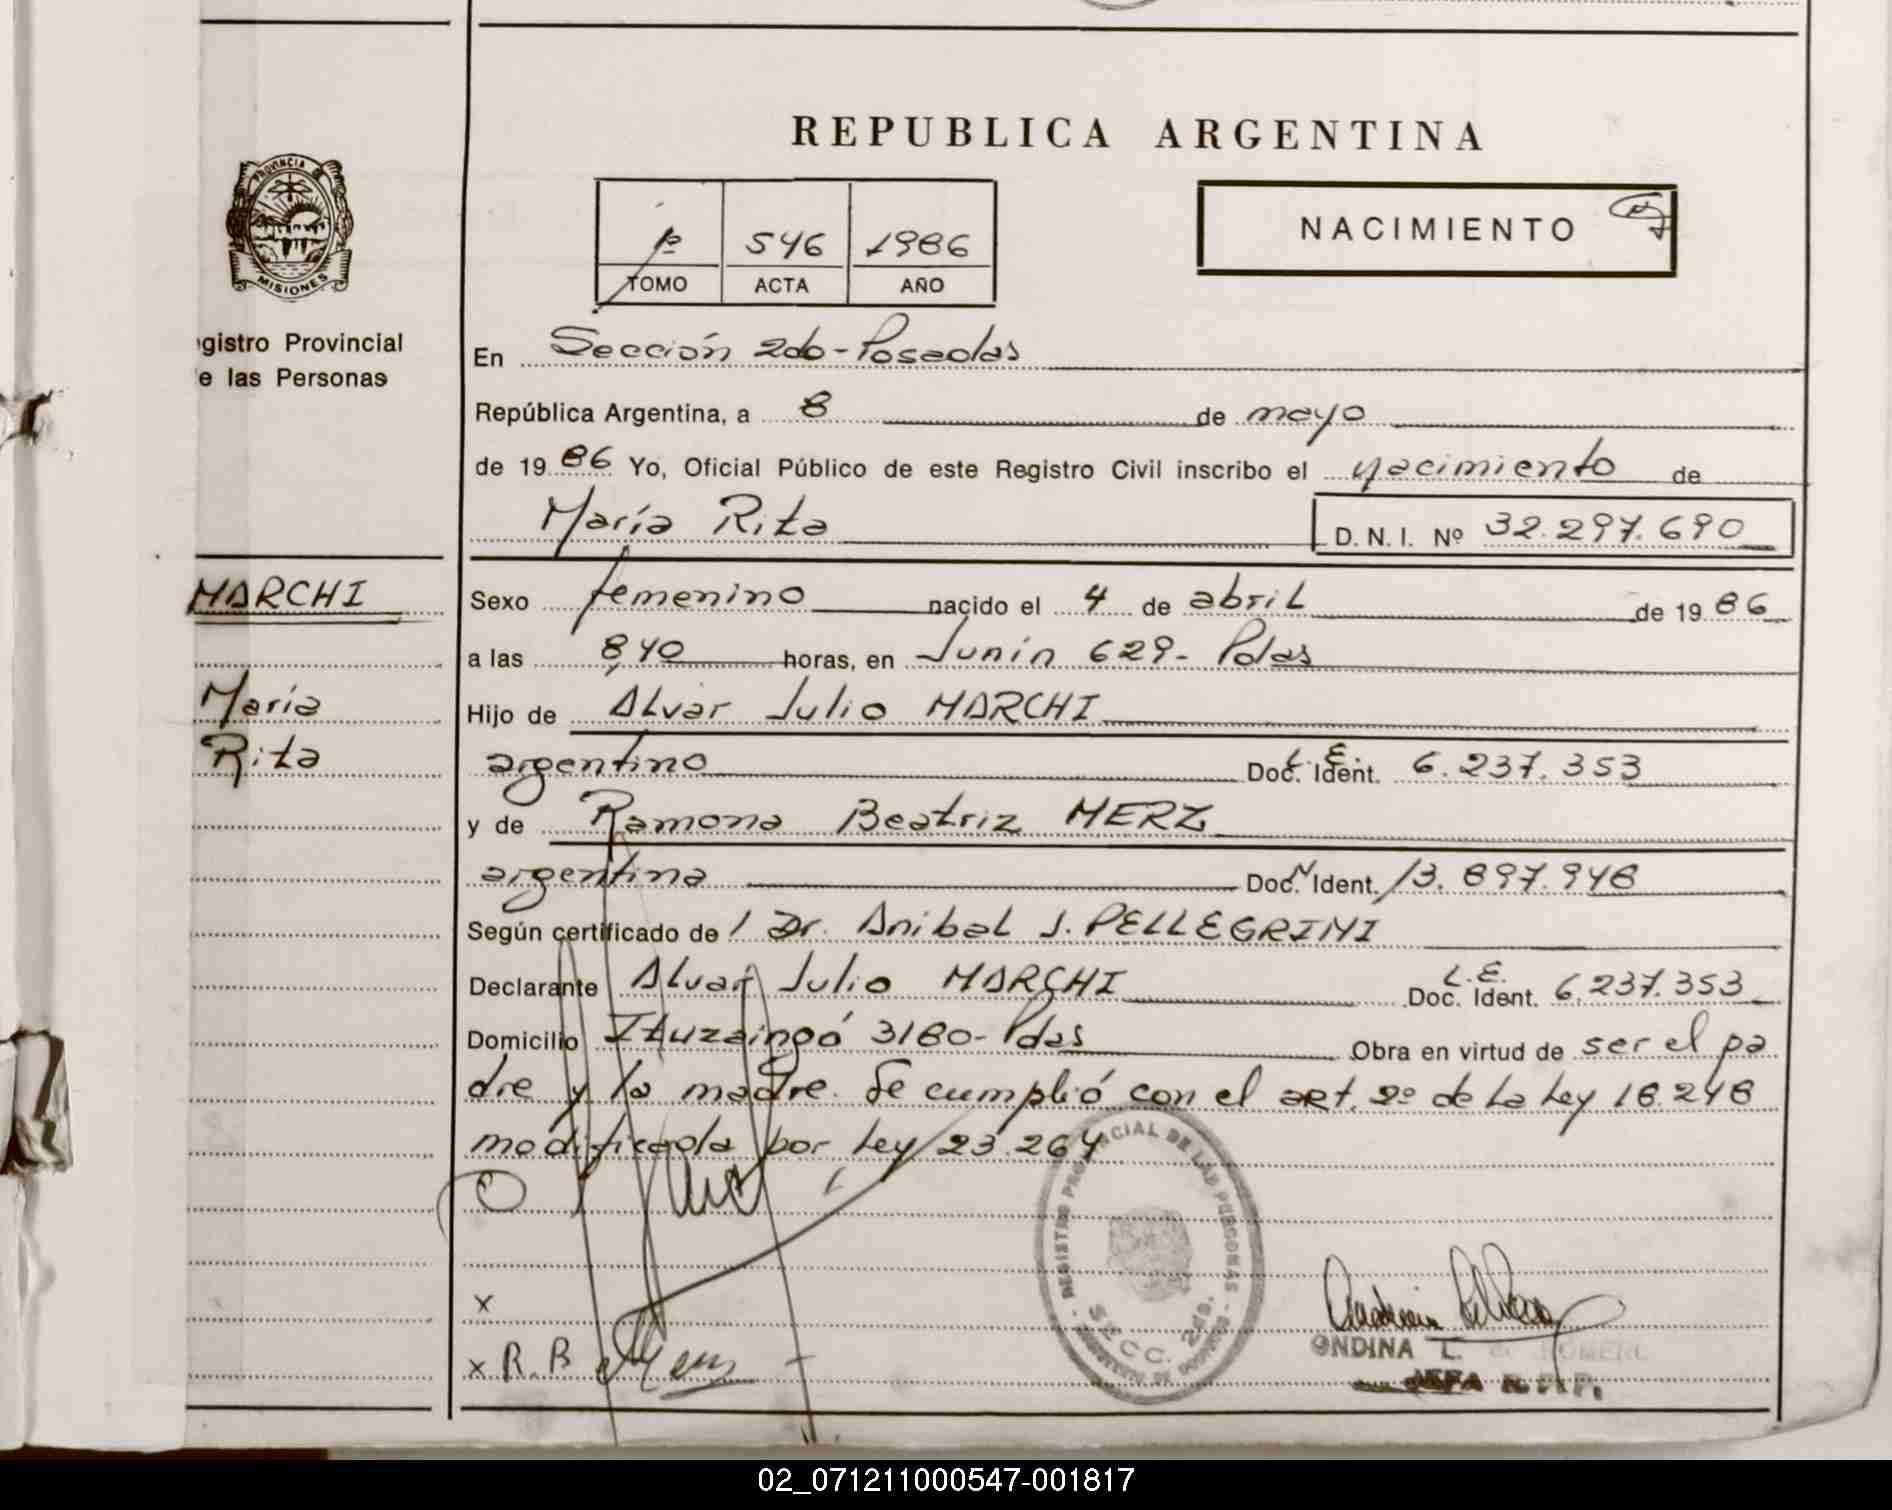 REPUBLICA ARGENTINA
PROVINCIA DE
MISIONES
gistro Provincial
e las Personas
1º 546 1986
TOMO ACTA AÑO
NACIMIENTO
En Sección 2da-Posadas
República Argentina, a 8 de mayo
de 1986 Yo, Oficial Público de este Registro Civil inscribo el nacimiento de
María Rita D. N. I. Nº 32.297.690
MARCHI
María
Rita
Sexo femenino nacido el 4 de abril de 1986
a las 8,40 horas, en Junín 629- Pdas
Hijo de Alvar Julio MARCHI
argentino Doc. Ident. L.E. 6.237.353
y de Ramona Beatriz MERZ
argentina Doc. Ident. 13.897.948
Según certificado de l Dr. Anibal J. PELLEGRINI
Declarante Alvar Julio MARCHI Doc. Ident. L.E. 6.237.353
Domicilio Ituzaingó 3180- Pdas Obra en virtud de ser el pa
dre y la madre. Se cumplió con el art. 2º de la Ley 18.248
modificada por Ley 23.264
REGISTRO PROVINCIAL DE LAS PERSONAS
SECC. 2da.
x
x R.B Merz
ONDINA L. de ROMERO
JEFA R.P.P.
02_071211000547-001817